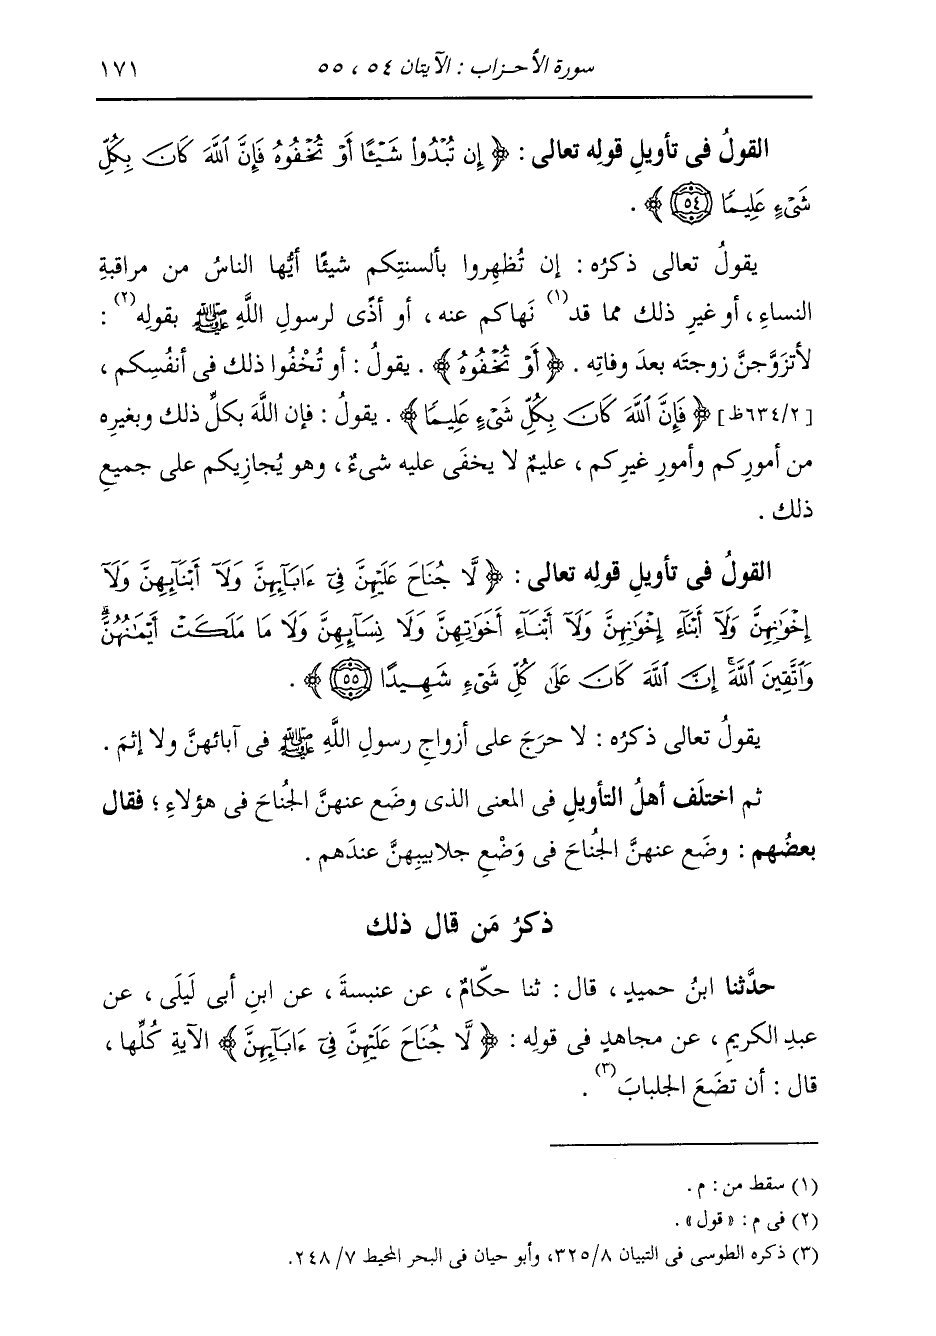 سورة الأحزاب : الآيتان ٥٤ ، ٥٥ ١٧١
القولُ فى تأويلِ قولِه تعالى : ﴿ إِن تُبْدُوا۟ شَيْـًٔا أَوْ تُخْفُوهُ فَإِنَّ ٱللَّهَ كَانَ بِكُلِّ
شَىْءٍ عَلِيمًا ٥٤ ﴾ .
يقولُ تعالى ذكرُه : إن تُظهِروا بألسنتِكم شيئًا أيُّها الناسُ من مراقبةِ
النساءِ ، أو غيرِ ذلك مما قد(١) نَهاكم عنه ، أو أذًى لرسولِ اللَّهِ ﷺ بقولِه(٢) :
لأتزَوَّجنَّ زوجتَه بعدَ وفاتِه . ﴿ أَوْ تُخْفُوهُ ﴾ . يقولُ : أو تُخْفُوا ذلك فى أنفُسِكم ،
[٦٣٤/٢ظ] ﴿ فَإِنَّ ٱللَّهَ كَانَ بِكُلِّ شَىْءٍ عَلِيمًا ﴾ . يقولُ : فإن اللَّهَ بكلِّ ذلك وبغيرِه
من أمورِكم وأمورِ غيرِكم ، عليمٌ لا يخفَى عليه شىءٌ ، وهو يُجازِيكم على جميعِ
ذلك .
القولُ فى تأويلِ قولِه تعالى : ﴿ لَّا جُنَاحَ عَلَيْهِنَّ فِىٓ ءَابَآئِهِنَّ وَلَآ أَبْنَآئِهِنَّ وَلَآ
إِخْوَٰنِهِنَّ وَلَآ أَبْنَآءِ إِخْوَٰنِهِنَّ وَلَآ أَبْنَآءِ أَخَوَٰتِهِنَّ وَلَا نِسَآئِهِنَّ وَلَا مَا مَلَكَتْ أَيْمَٰنُهُنَّ ۗ
وَٱتَّقِينَ ٱللَّهَ ۚ إِنَّ ٱللَّهَ كَانَ عَلَىٰ كُلِّ شَىْءٍ شَهِيدًا ٥٥ ﴾ .
يقولُ تعالى ذكرُه : لا حرَجَ على أزواجِ رسولِ اللَّهِ ﷺ فى آبائهنَّ ولا إثمَ .
ثم اختلَف أهلُ التأويلِ فى المعنى الذى وضَع عنهنَّ الجُناحَ فى هؤلاءِ ؛ فقال
بعضُهم : وضَع عنهنَّ الجُناحَ فى وَضْعِ جلابيبِهنَّ عندَهم .
ذكرُ مَن قال ذلك
حدَّثنا ابنُ حميدٍ ، قال : ثنا حكَّامٌ ، عن عنبسةَ ، عن ابنِ أبى لَيلَى ، عن
عبدِ الكريمِ ، عن مجاهدٍ فى قولِه : ﴿ لَّا جُنَاحَ عَلَيْهِنَّ فِىٓ ءَابَآئِهِنَّ ﴾ الآيةِ كُلِّها ،
قال : أن تضَعَ الجلبابَ(٣) .
(١) سقط من : م .
(٢) فى م : « قول » .
(٣) ذكره الطوسى فى التبيان ٣٢٥/٨، وأبو حيان فى البحر المحيط ٢٤٨/٧ .